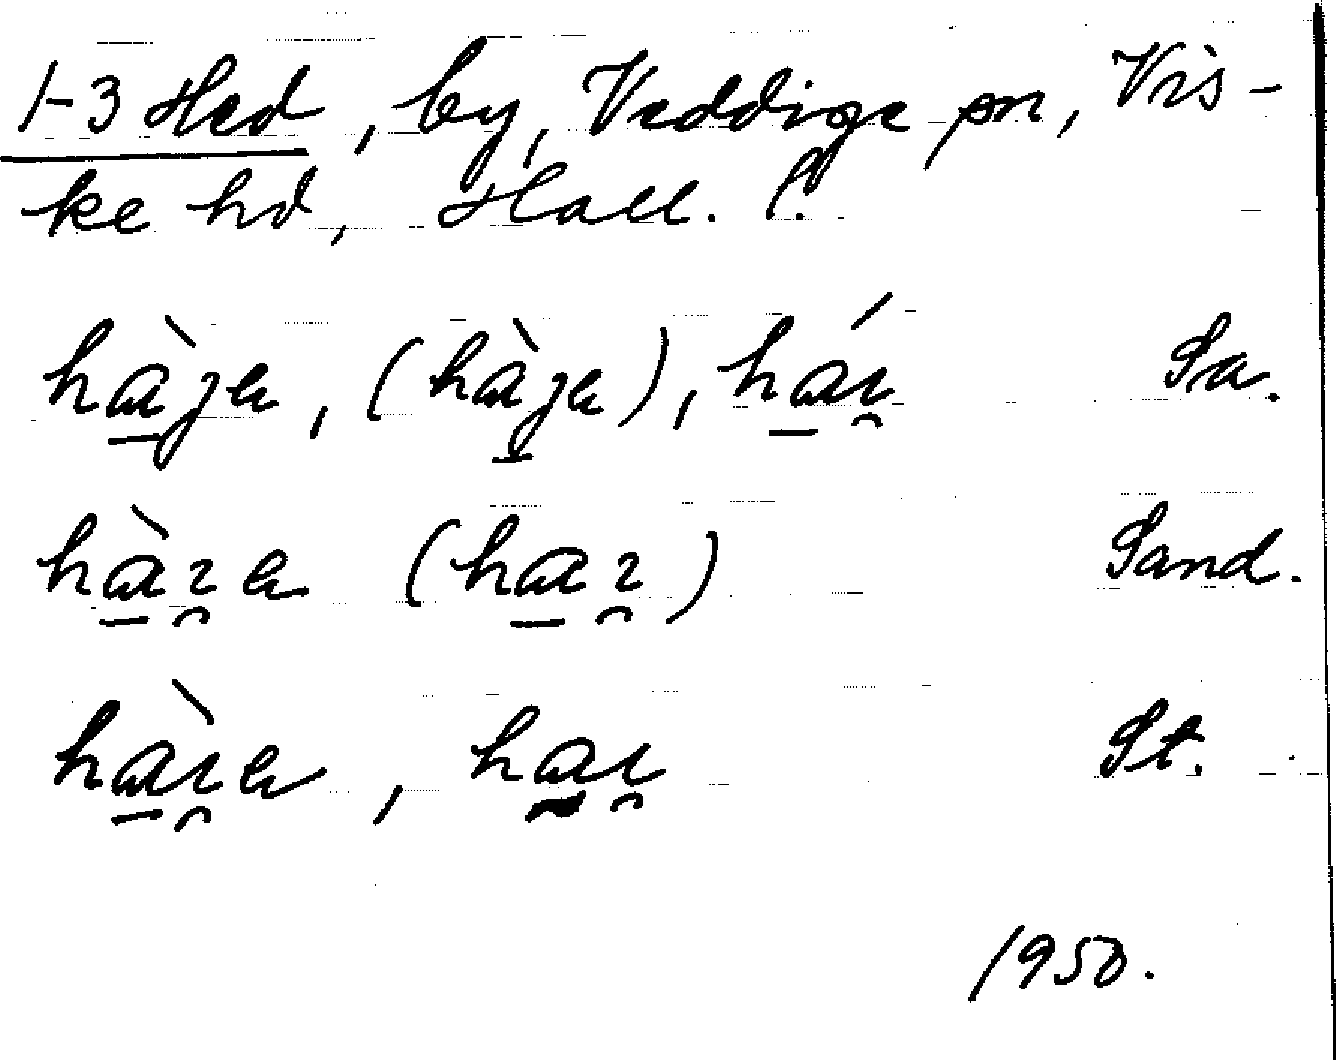 1-3 Hed, by, Veddige sn, Vis-
ke hd, Hall. l.
hàja, (hàja), hái Sa.
hàza (haz) Sand.
hàıa, haı St.
1950.